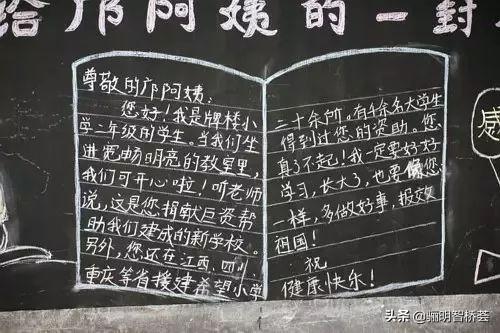 给邝阿姨的一封
尊敬的邝阿姨:
您好!我是牌楼小
学二年级的学生。当我们坐
进宽畅明亮的教室里,
我们可开心啦!听老师
说,这是您捐献巨资帮
助我们建成的新学校。
另外,您还在江西、四川
重庆等省援建希望小学
二十余所。有千余名大学生
得到过您的资助。您
真了不起!我一定要好好
学习,长大了,也要像您
一样,多做好事,报效
祖国!
祝
健康快乐!
感
头条 @骊明智桥荟